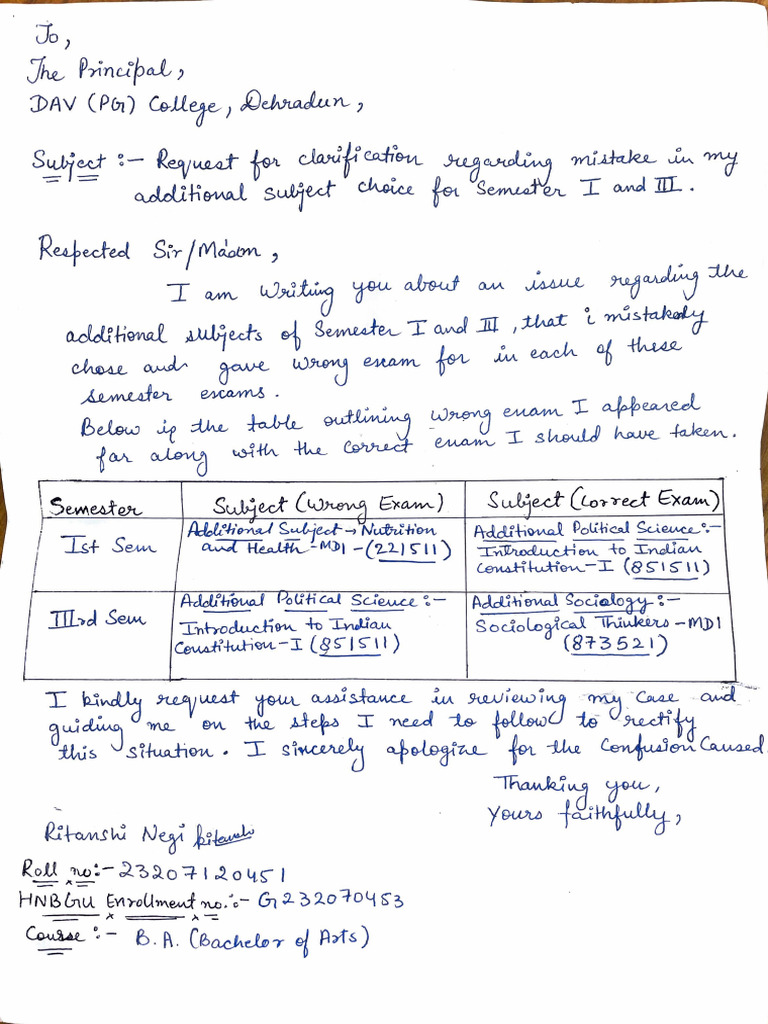 To,
The Principal,
DAV (PG) College, Dehradun,
Subject :- Request for clarification regarding mistake in my
additional subject choice for Semester I and III.
Respected Sir/Ma'am,
I am writing you about an issue regarding the
additional subjects of Semester I and III, that i mistakenly
chose and gave wrong exam for in each of these
semester exams.
Below is the table outlining wrong exam I appeared
for along with the correct exam I should have taken.
Semester Subject (Wrong Exam) Subject (Correct Exam)
Ist Sem
Additional Subject → Nutrition
and Health -MD1 - (221511)
Additional Political Science:-
Introduction to Indian
Constitution-I (851511)
IIIrd Sem
Additional Political Science:-
Introduction to Indian
Constitution-I (851511)
Additional Sociology:-
Sociological Thinkers -MD1
(873521)
I kindly request your assistance in reviewing my case and
guiding me on the steps I need to follow to rectify
this situation. I sincerely apologize for the confusion caused.
Thanking you,
Yours faithfully,
Ritanshi Negi Ritanshi
Roll no:- 23207120451
HNBGU Enrollment no.:- G232070453
Course :- B.A. (Bachelor of Arts)